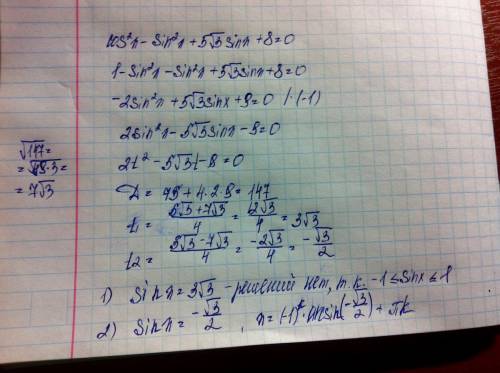 cos²x - sin²x + 5√3 sinx + 8 = 0
1 - sin²x - sin²x + 5√3 sinx + 8 = 0
-2sin²x + 5√3 sinx + 9 = 0 /·(-1)
2sin²x - 5√3 sinx - 9 = 0
2t² - 5√3t - 9 = 0
√147 =
= √49·3 =
= 7√3
D = 75 + 4·2·9 = 147
t₁ = (5√3 + 7√3)/4 = 12√3/4 = 3√3
t₂ = (5√3 - 7√3)/4 = -2√3/4 = -√3/2
1) sin x = 3√3 - решений нет, т.к. -1 ≤ sinx ≤ 1
2) sin x = -√3/2, x = (-1)ᵏ · arcsin(-√3/2) + πk